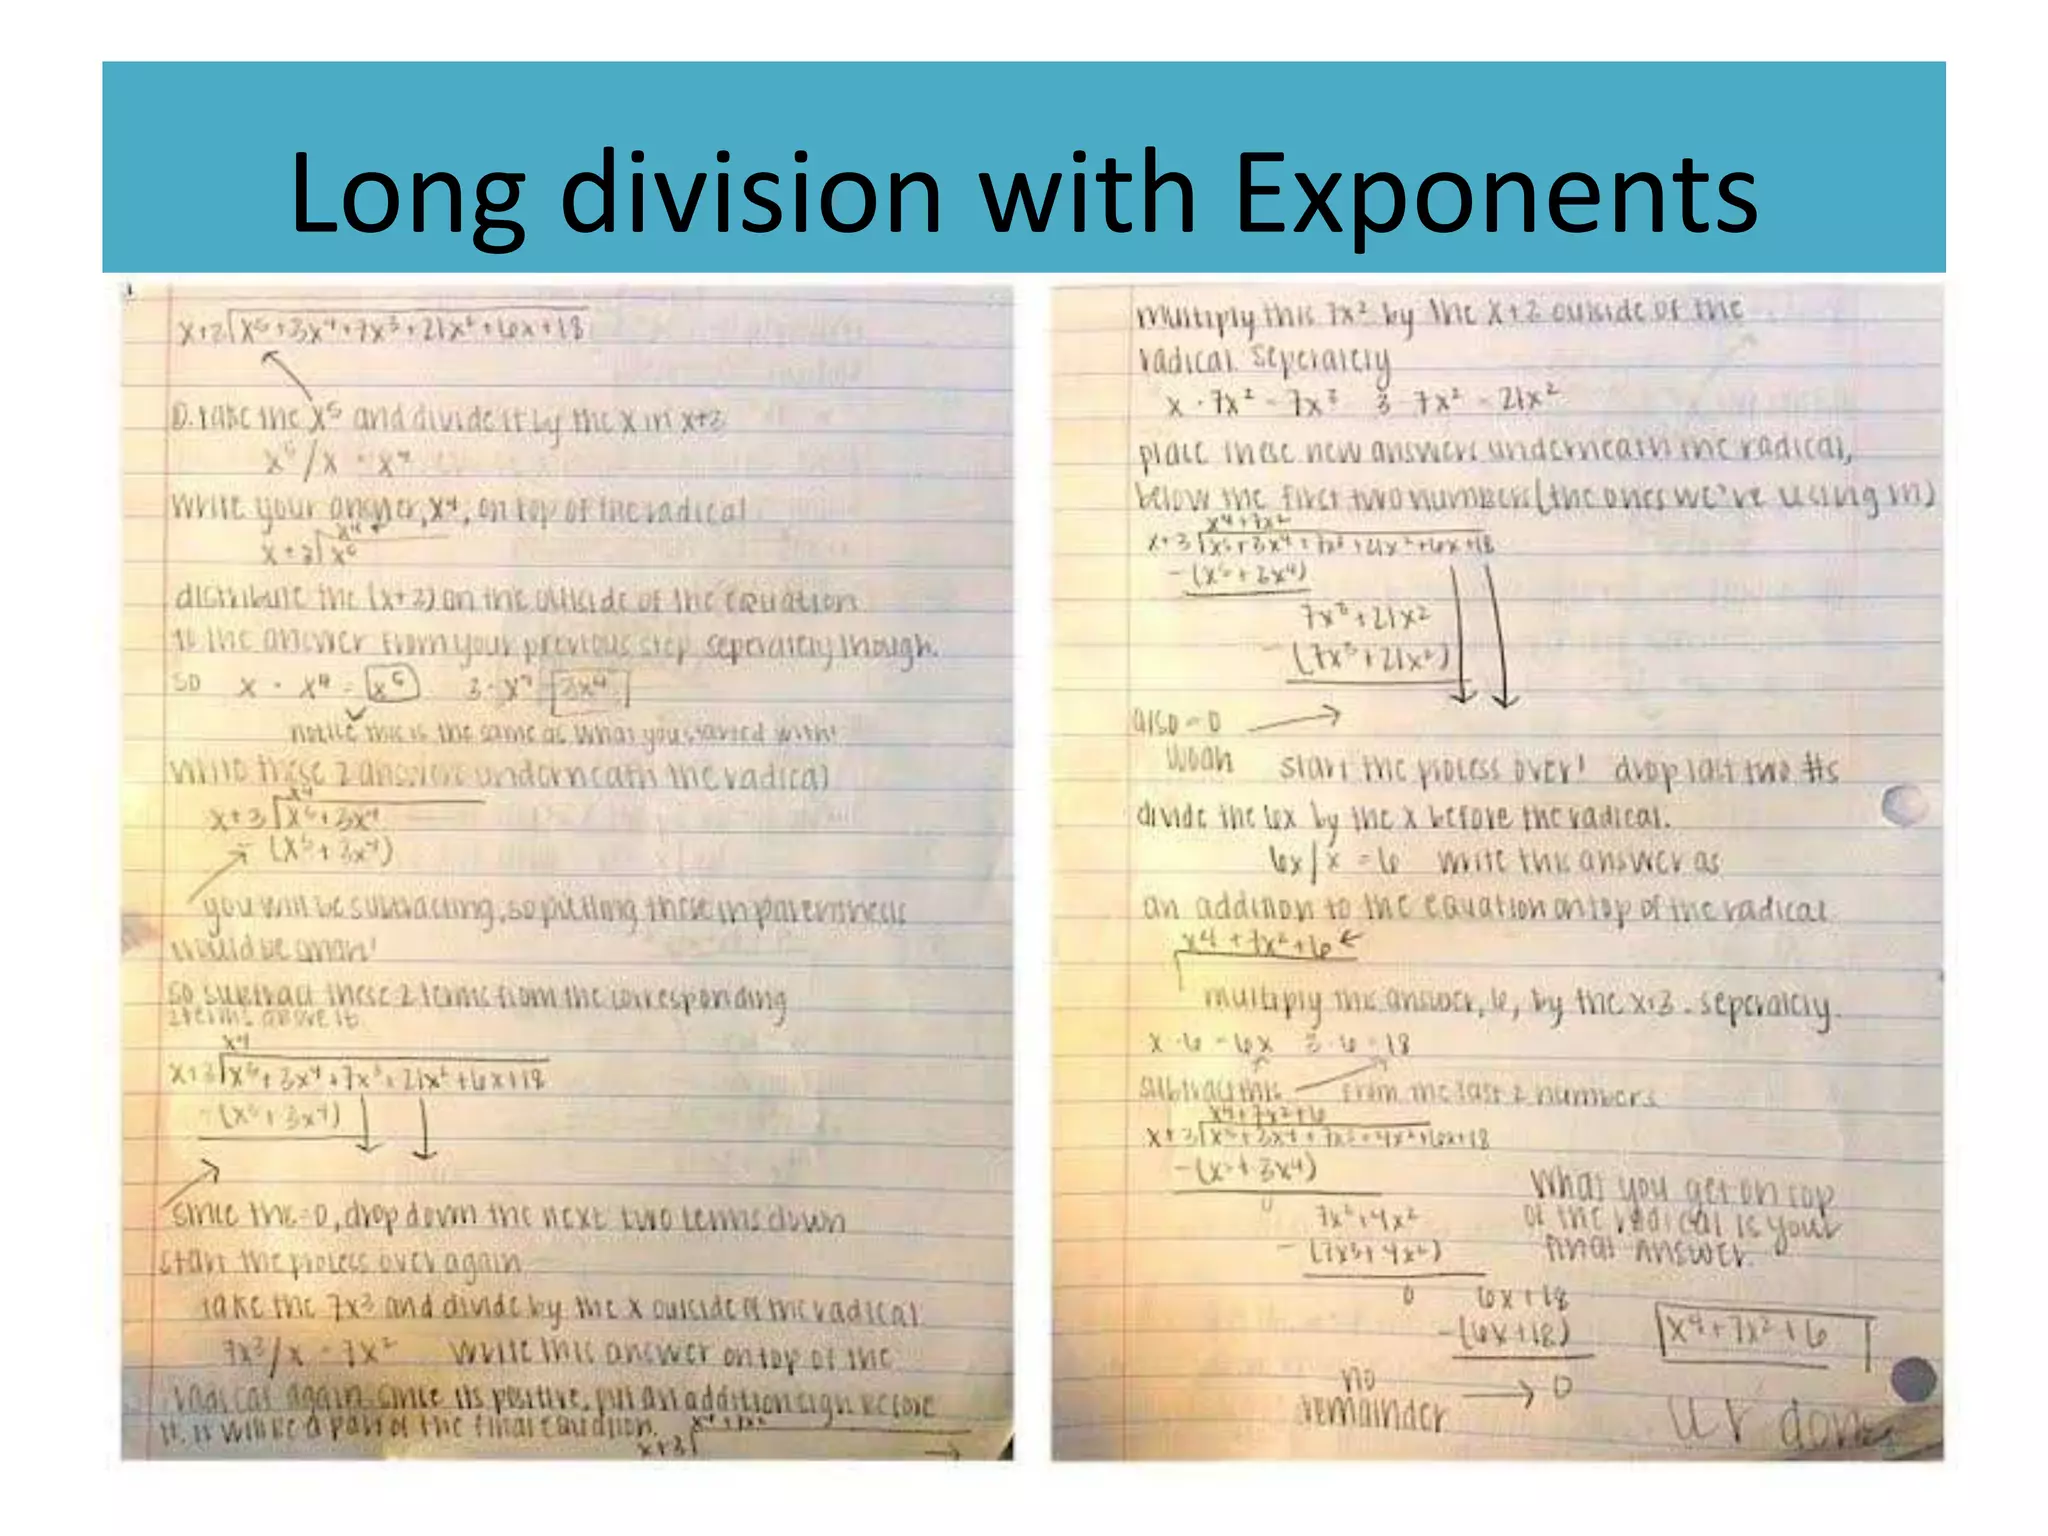 Long division with Exponents
x+2 x⁵+3x⁴+7x³+21x²+6x+18
①. take the x⁵ and divide it by the x in x+3
x⁵/x = x⁴
write your answer, x⁴, on top of the radical
x⁴
x+3 x⁵
distribute the (x+3) on the outside of the equation
to the answer from your previous step seperately though.
so x · x⁴ = x⁵ 3 · x⁴ = 3x⁴
notice this is the same as what you started with!
write these 2 answers underneath the radical
x⁴
x+3 x⁵+3x⁴
- (x⁵+3x⁴)
you will be subtracting, so putting these in parenthesis
would be smart!
so subtract these 2 terms from the corresponding
2 terms above it
x⁴
x+3 x⁵+3x⁴+7x³+21x²+6x+18
- (x⁵+3x⁴)
since this=0, drop down the next two terms down
start the process over again
take the 7x³ and divide by the x outside of the radical
7x³/x = 7x² write this answer on top of the
radical again. since its positive, put an addition sign before
it. it will be a part of the final equation.
x⁴+7x²
x+3
multiply this 7x² by the x+2 outside of the
radical seperately
x · 7x² = 7x³ 3 · 7x² = 21x²
place these new answers underneath the radical,
below the first two numbers (the ones we're using in)
x⁴+7x²
x+3 x⁵+3x⁴+7x³+21x²+6x+18
- (x⁵+3x⁴)
7x³+21x²
- (7x³+21x²)
also = 0
woah start the process over! drop last two #s
divide the 6x by the x before the radical.
6x/x = 6 write this answer as
an addition to the equation on top of the radical
x⁴+7x²+6
multiply this answer, 6, by the x+3. seperately.
x · 6 = 6x 3 · 6 = 18
subtract this from the last 2 numbers
x⁴+7x²+6
x+3 x⁵+3x⁴+7x³+4x²+6x+18
- (x⁵+3x⁴)
0
7x³+4x²
- (7x³+4x²)
0 6x+18
- (6x+18)
0
What you get on top
of the radical is your
final answer.
x⁴+7x²+6
no
remainder
ur done